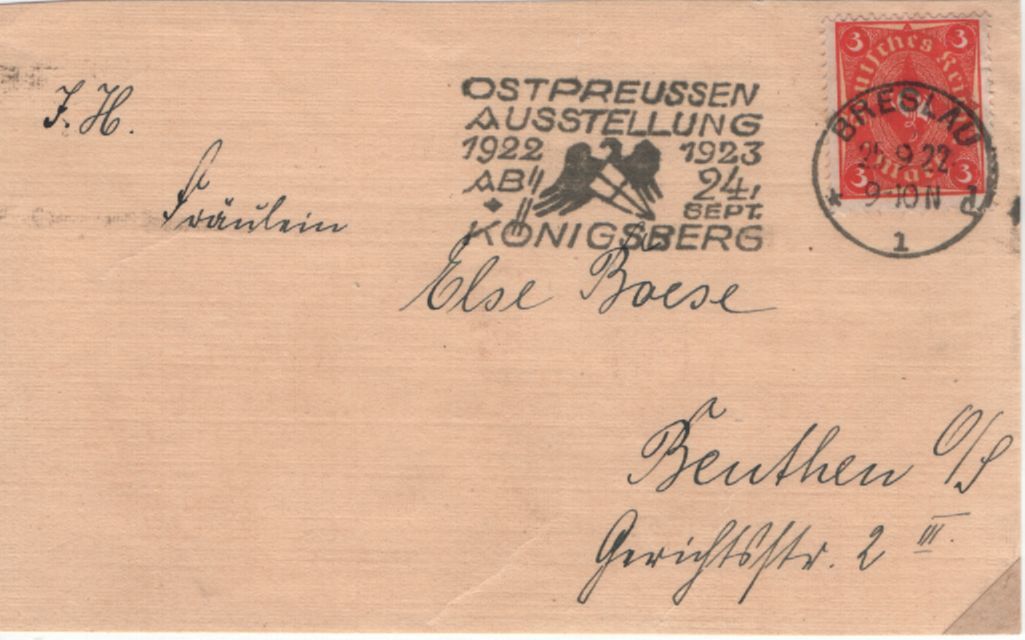 J. H.
Fräulein
Else Boese
Beuthen O/S
Gerichtsstr. 2 III.
OSTPREUSSEN
AUSSTELLUNG
1922 1923
AB 24,
SEPT.
KÖNIGSBERG
3 3
Deutsches Reich
3 Mark 3
BRESLAU
25.9.22
9-10N
1